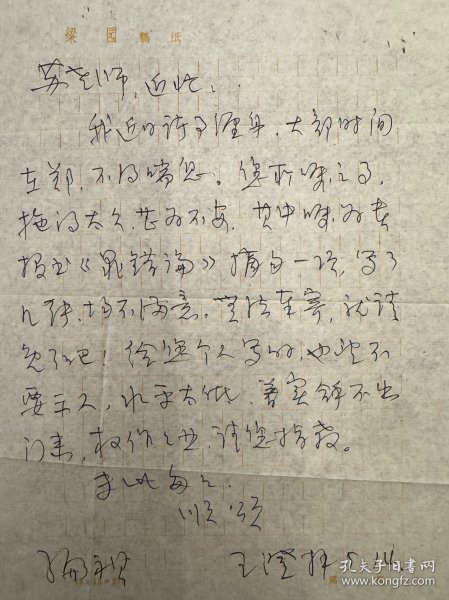 梁园稿纸
苏老师：近好！
我近日诸事缠身，大部时间
在郑，不得喘息。您所嘱之事，
拖得太久，甚为不安，其中嘱为书
报出《晁错论》摘句一项，写了
几张，均不满意，无法奉寄，就请
免了吧！给您个人写的，也望不
要示人，水平太低，着实拿不出
门来，权作作业，请您指教。
专此
顺颂
编祺
王澄拜
孔夫子旧书网
www.kongfz.com